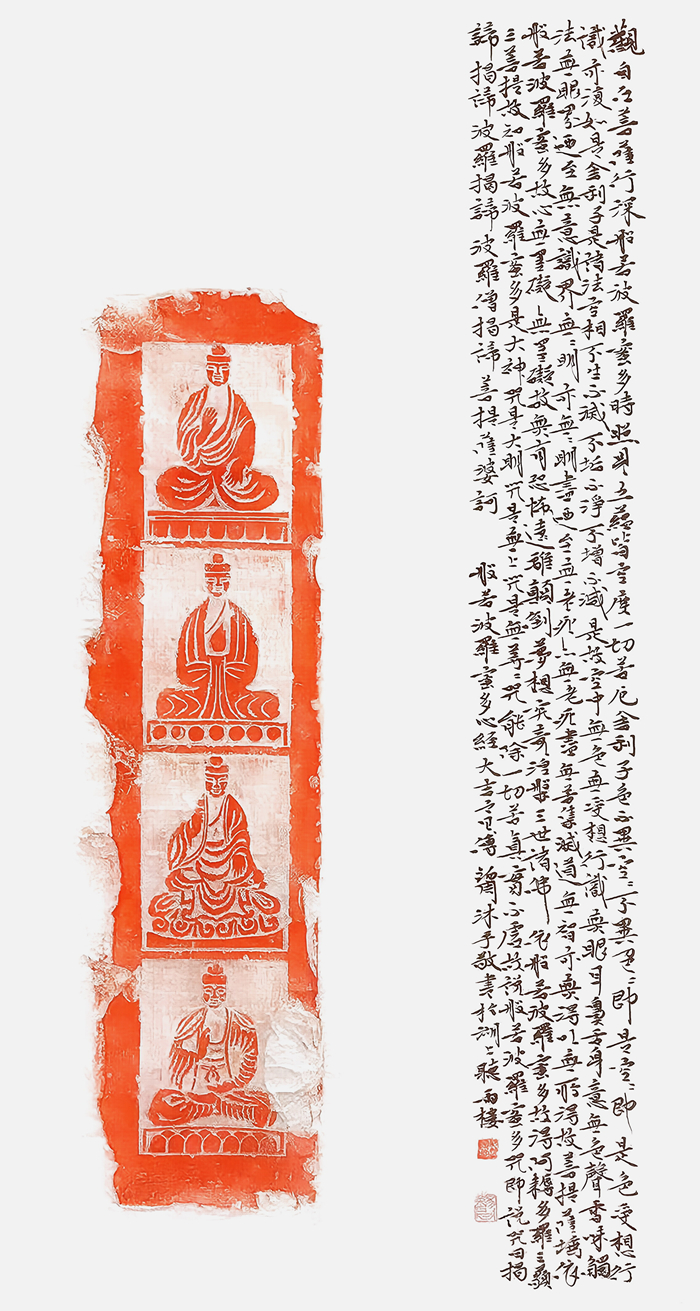 觀自在菩薩行深般若波羅蜜多時照見五蘊皆空度一切苦厄舍利子色不異空〻不異色〻即是空〻即是色受想行
識亦復如是舍利子是諸法空相不生不滅不垢不淨不增不減是故空中無色無受想行識無眼耳鼻舌身意無色聲香味觸
法無眼界迺至無意識界無〻明亦無〻明盡迺至無老死亦無老死盡無苦集滅道無智亦無得以無所得故菩提薩埵依
般若波羅蜜多故心無罣礙無罣礙故無有恐怖遠離顛倒夢想究竟涅槃三世諸佛依般若波羅蜜多故得阿耨多羅三藐
三菩提故知般若波羅蜜多是大神咒是大明咒是無上咒是無等〻咒能除一切苦真實不虛故說般若波羅蜜多咒即說咒曰揭
諦揭諦波羅揭諦波羅僧揭諦菩提薩婆訶 般若波羅蜜多心經大吉 沐手敬書於湖上聽雨樓